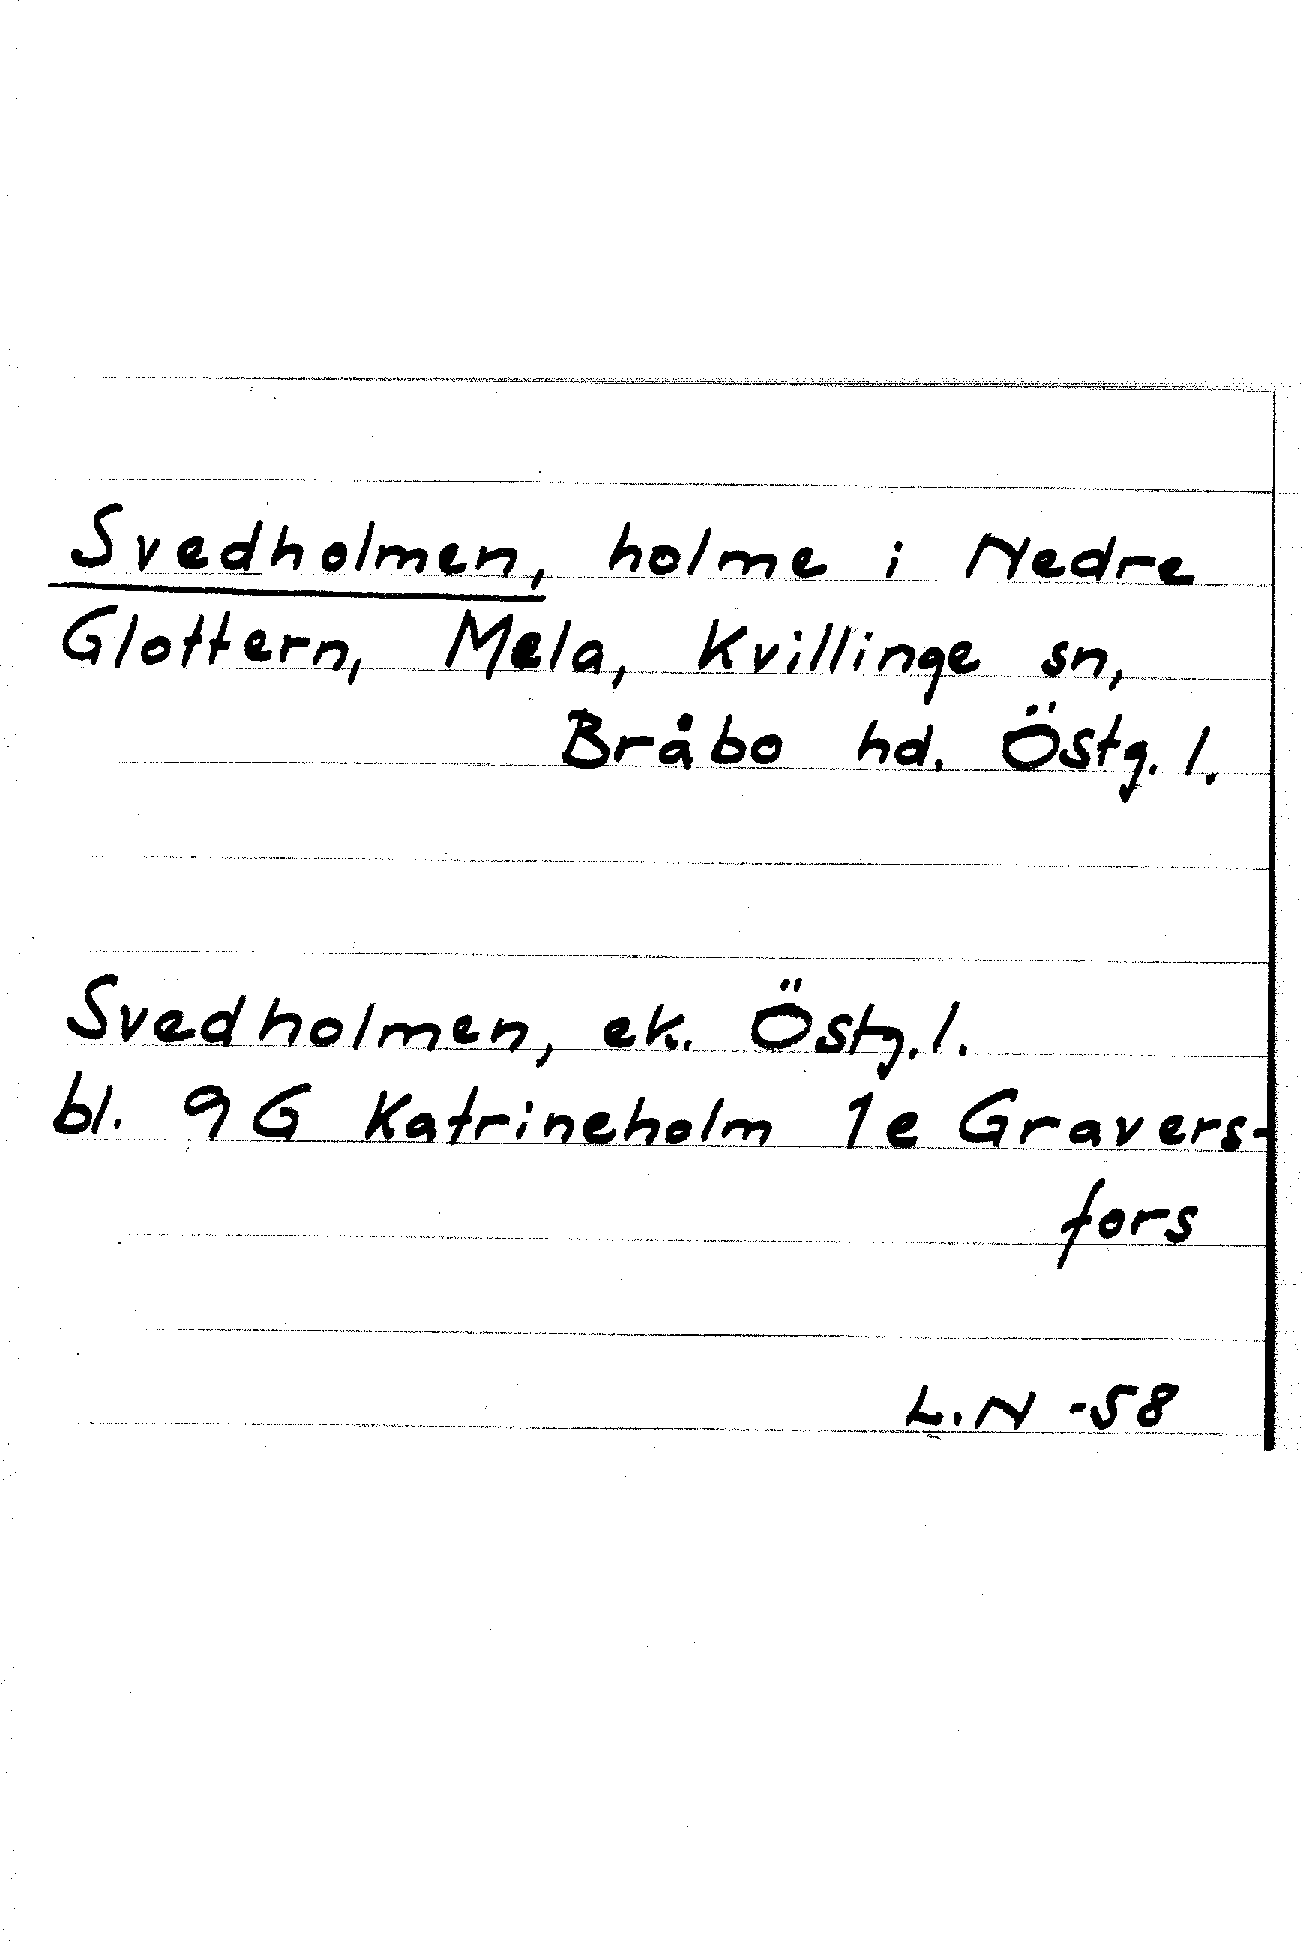 Svedholmen, holme i Nedre
Glottern, Mela, Kvillinge sn,
Bråbo hd. Östg. l.
Svedholmen, ek. Östg. l.
bl. 9 G Katrineholm 1e Gravers-
fors
L.N -58